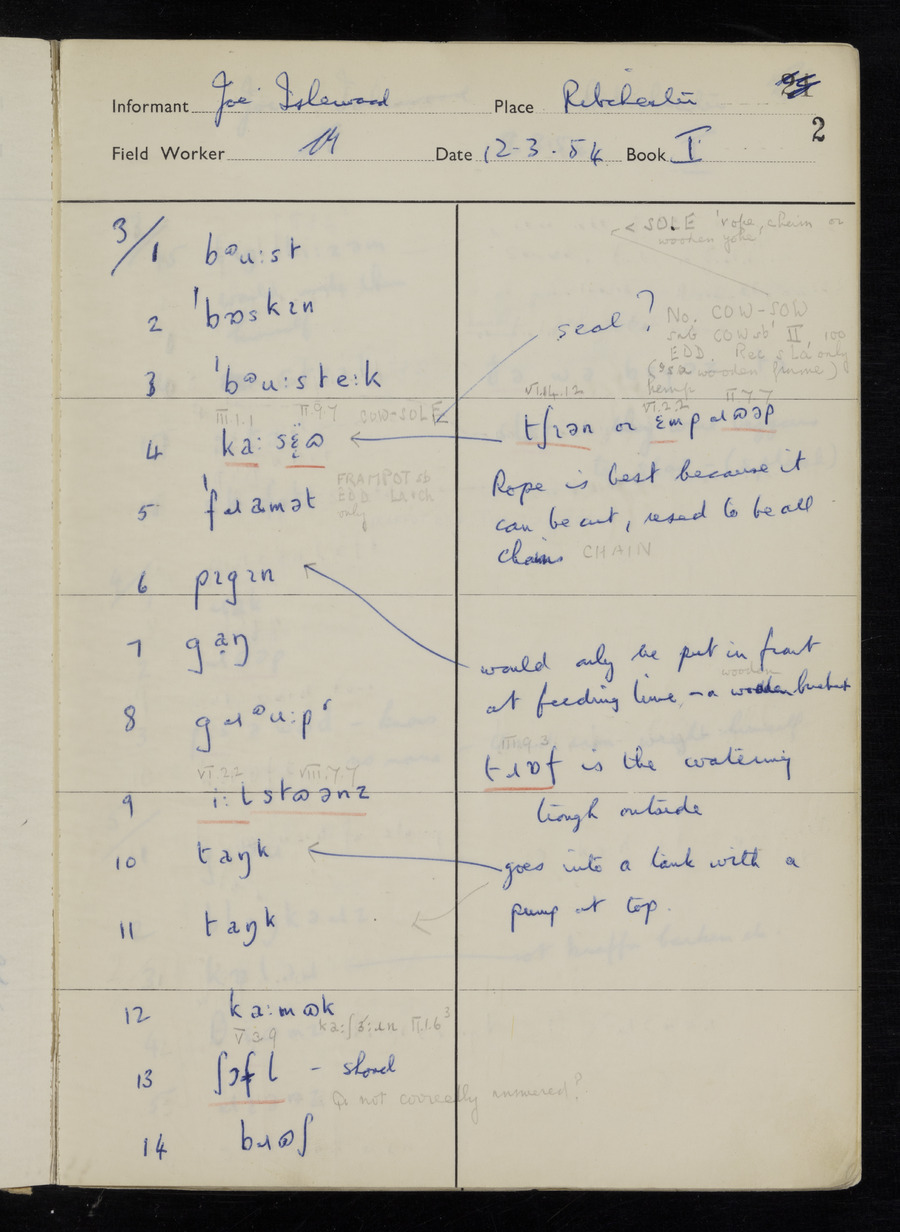 Informant Joe Isherwood Place Ribchester
2
Field Worker Date 12-3.54 Book I
3/1 bəu:st
< SOLE 'rope, chain or
wooden yoke'
2 'bɷskɪn
seal?
No. COW-SOW
sub COW sb' II, 100
EDD. Rec s La only
(
wooden frame)
hemp
3 'bəu:ste:k
VI.14.12 VI.2.2 II 7.7
III.1.1 II 9 7 COW-SOLE
4 ka: sëɷ
tʃɪən or ɛmpɹɷəp
FRAMPOT sb
EDD
only
5 'fɹamət
Rope is best because it
can be cut, used to be all
chains CHAIN
6 pɪgɪn
7 gaŋ
would only be put in front
wooden
at feeding time, - a wooden bucket
8 gɹəu:pʻ
III.9.3
tɹɒf is the watering
trough outside
VI.2.2 VIII.7.7
9 i:tstɷənz
10 taŋk
goes into a tank with a
pump at top.
11 taŋk
12 ka:mɷk
V 3.9 II.1.6³
13 ʃɔfl - shovel
Q. not correctly answered?
14 bɹɷʃ